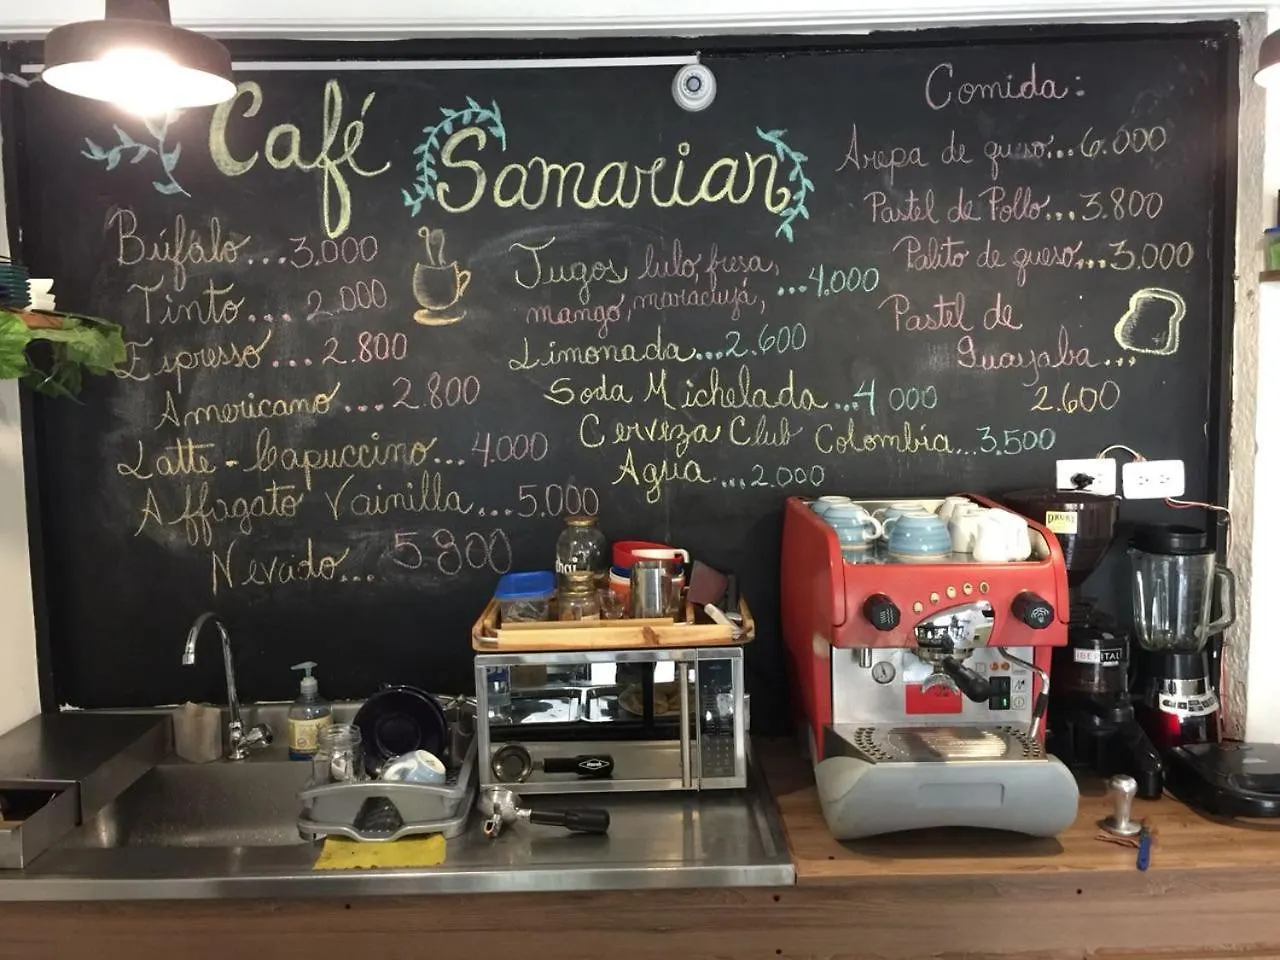 Café Samarian
Búfalo...3.000
Tinto...2.000
Espresso...2.800
Americano...2.800
Latte - Capuccino...4.000
Affogato Vainilla...5.000
Nevado...5.800
Jugos lulo, fresa,
mango, maracuyá, ...4.000
Limonada...2.600
Soda Michelada...4 000
Cerveza Club Colombia...3.500
Agua...2.000
Comida:
Arepa de queso...6.000
Pastel de Pollo...3.800
Palito de queso...3.000
Pastel de
Guayaba...
2.600
IBERITAL